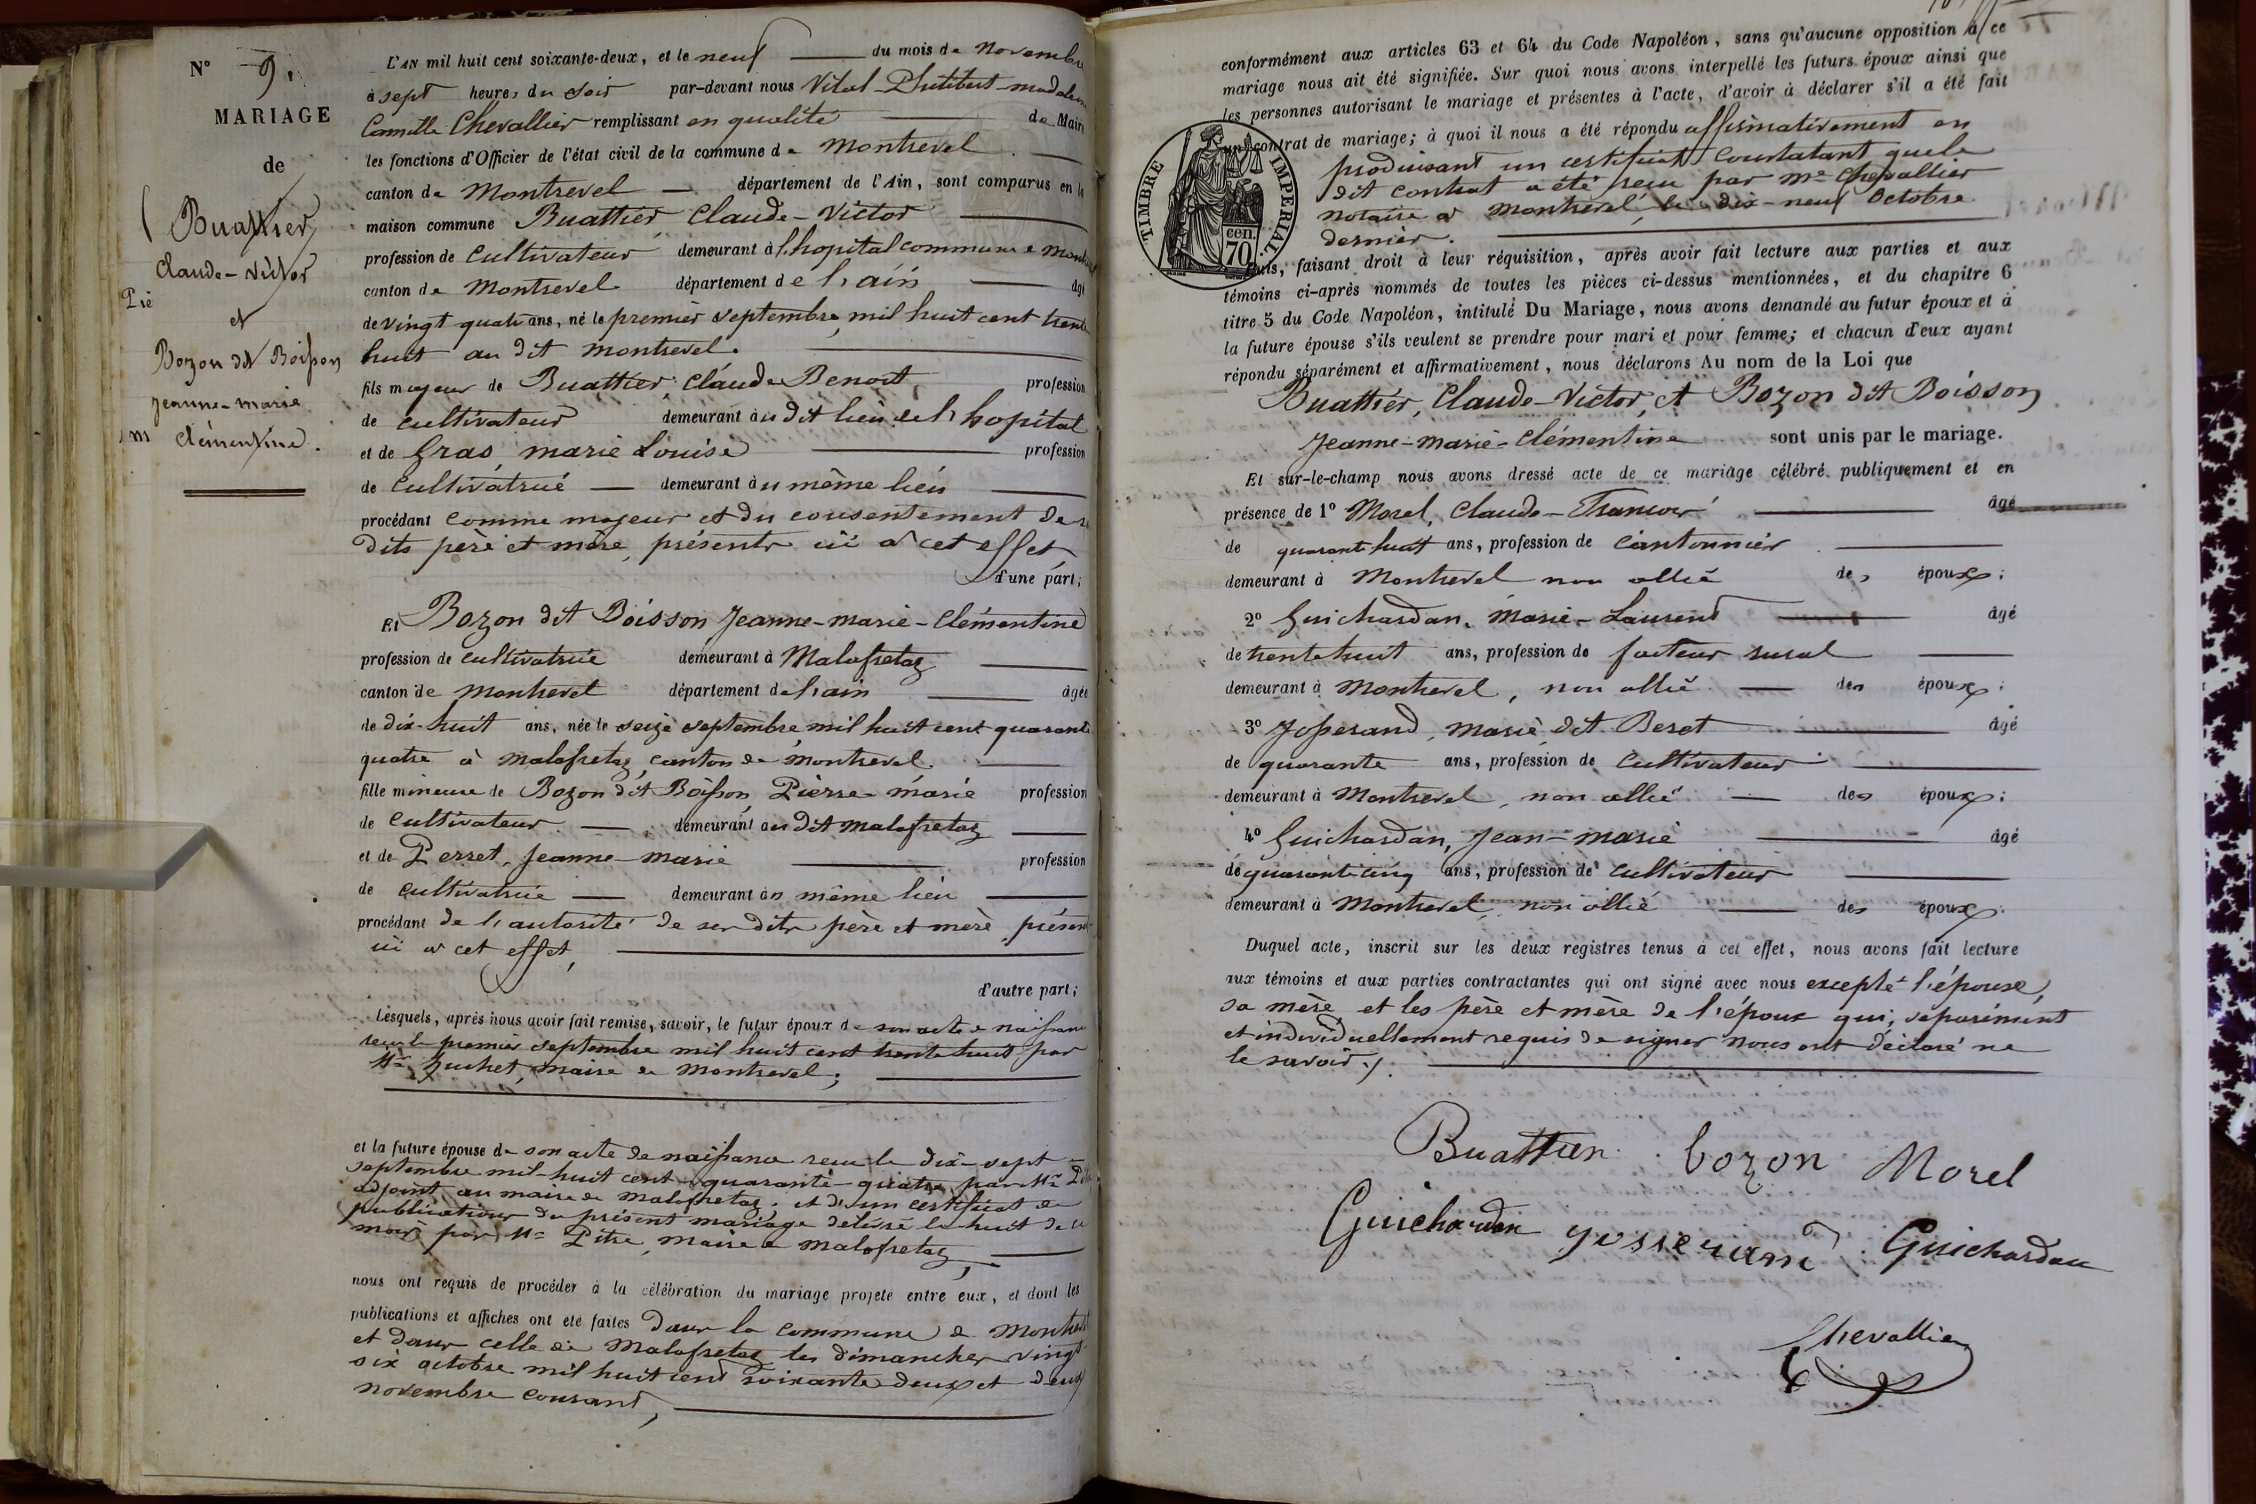 N° 9.
MARIAGE
de
Buattier
Claude-Victor
et
Bozon dit Boisson
Jeanne-marie
Clémentine.
L'AN mil huit cent soixante-deux, et le neuf du mois de Novembre
à sept heures du Soir par-devant nous Vital Philibert madeleine
Camille Chevallier remplissant en qualité de Maire
les fonctions d'Officier de l'état civil de la commune de Montrevel
canton de Montrevel département de l'Ain, sont comparus en la
maison commune Buattier, Claude-Victor
profession de Cultivateur demeurant à l'hopital commune de Montrevel
canton de Montrevel département de l'ain âgé
de vingt quatre ans, né le premier septembre mil huit cent trente
huit au dit montrevel.
fils majeur de Buattier, Claude Benoit, profession
de cultivateur demeurant au dit lieu de l'hopital
et de Gras, marie Louise profession
de Cultivatrice demeurant au même lieu
procédant comme majeur et du consentement de ses
dits père et mère, présents ici à cet effet
d'une part;
Et Bozon dit Boisson Jeanne-marie-Clémentine
profession de cultivatrice demeurant à Malafretaz
canton de montrevel département de l'ain âgée
de dix-huit ans, née le seize septembre mil huit cent quarante
quatre à malafretaz, canton de montrevel.
fille mineure de Bozon dit Boisson Pierre marie profession
de Cultivateur demeurant au dit malafretaz
et de Perret, Jeanne-marie profession
de cultivatrice demeurant au même lieu
procédant de l'autorité de ses dits père et mère, présents
ici à cet effet,
d'autre part;
Lesquels, après nous avoir fait remise, savoir, le futur époux de son acte de naissance
reçu le premier septembre mil huit cent trente huit par
Mr maire de Montrevel;
et la future épouse de son acte de naissance reçu le dix-sept
septembre mil-huit cent-quarante-quatre par Mr
adjoint au maire de malafretaz, et d'un certificat de
publications du présent mariage délivré le huit de ce
mois par Mr Pitre, maire de malafretaz,
nous ont requis de procéder à la célébration du mariage projeté entre eux, et dont les
publications et affiches ont été faites dans la commune de Montrevel
et dans celle de Malafretaz les dimanches vingt
six octobre mil huit cent soixante deux et deux
novembre courant,
conformément aux articles 63 et 64 du Code Napoléon, sans qu'aucune opposition à ce
mariage nous ait été signifiée. Sur quoi nous avons interpellé les futurs époux ainsi que
les personnes autorisant le mariage et présentes à l'acte, d'avoir à déclarer s'il a été fait
un contrat de mariage; à quoi il nous a été répondu affirmativement en
produisant un certificat constatant que le
dit contrat a été reçu par Me Chevallier
notaire à Montrevel, le dix-neuf Octobre
dernier.
TIMBRE IMPERIAL.
cen.
70
Puis, faisant droit à leur réquisition, après avoir fait lecture aux parties et aux
témoins ci-après nommés de toutes les pièces ci-dessus mentionnées, et du chapitre 6
titre 5 du Code Napoléon, intitulé Du Mariage, nous avons demandé au futur époux et à
la future épouse s'ils veulent se prendre pour mari et pour femme; et chacun d'eux ayant
répondu séparément et affirmativement, nous déclarons Au nom de la Loi que
Buattier, Claude-Victor, et Bozon dit Boisson
Jeanne-marie-Clémentine sont unis par le mariage.
Et sur-le-champ nous avons dressé acte de ce mariage célébré publiquement et en
présence de 1° Morel, Claude-François âgé
de quarante huit ans, profession de Cantonnier
demeurant à Montrevel non allié des époux;
2° Guichardan, Marie-Laurent âgé
de trente huit ans, profession de facteur rural
demeurant à Montrevel, non allié des époux;
3° Josserand, marie dit Beret âgé
de quarante ans, profession de Cultivateur
demeurant à Montrevel, non allié des époux;
4° Guichardan, Jean-marie âgé
de quarante cinq ans, profession de cultivateur
demeurant à Montrevel, non allié des époux.
Duquel acte, inscrit sur les deux registres tenus à cet effet, nous avons fait lecture
aux témoins et aux parties contractantes qui ont signé avec nous excepté l'épouse,
sa mère, et les père et mère de l'époux qui, séparément
et individuellement requis de signer nous ont déclaré ne
le savoir.
Buattier bozon Morel
Guichardan josserand Guichardan
Chevallier